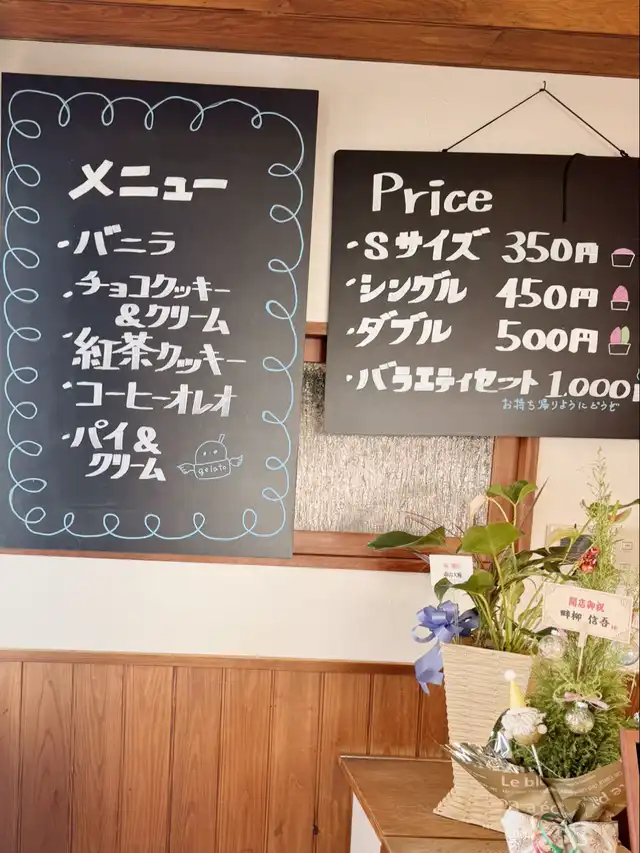 メニュー
・バニラ
・チョコクッキー
&クリーム
・紅茶クッキー
・コーヒーオレオ
・パイ&
クリーム
gelato
Price
・Sサイズ 350円
・シングル 450円
・ダブル 500円
・バラエティセット 1.000
お持ち帰りようにどうぞ
開店御祝
畔柳 信吾
Le bl